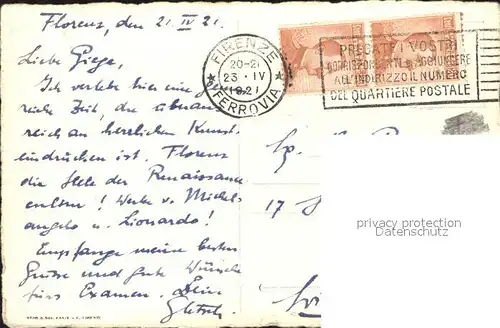 Florenz, den 21. IV 21.
Liebe Giega,
Ich verlebe hier eine
reiche Zeit, die überaus
reich an herrlichen Kunst-
eindrücken ist. Florenz
die Stelle der Renaissance
Werke v. Michel-
angelo u. Lionardo!
Empfange meine besten
Grüsse und gute Wünsche
fürs Examen. Dein
FIRENZE
20-21
23 · IV
1921
FERROVIA
PREGATE I VOSTRI
CORRISPONDENTI DI AGGIUNGERE
ALL'INDIRIZZO IL NUMERO
DEL QUARTIERE POSTALE
17
privacy protection
Datenschutz